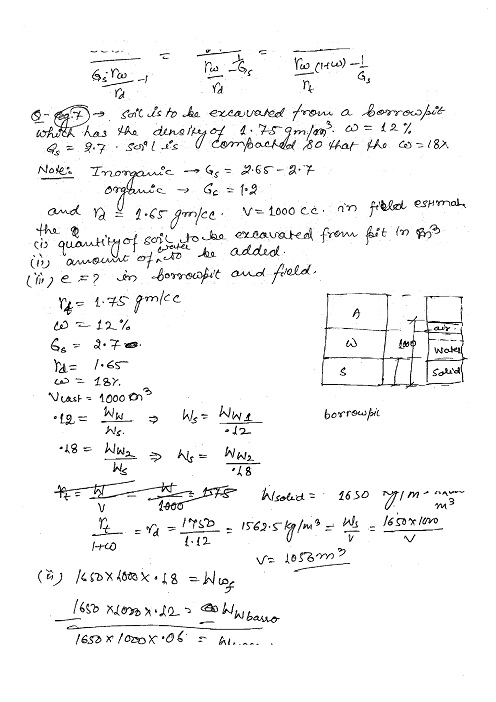 Gs·rw/rd -1 = rw/rd - 1/Gs = rw(1+ω)/rt - 1/Gs
Q- Pg.7 → soil is to be excavated from a borrowpit
which has the density of 1.75 gm/cm³. ω = 12%
Gs = 2.7. soil is compacted so that the ω = 18%
Note: Inorganic → Gs = 2.65 - 2.7
organic → Gs = 1.2
and rd = 1.65 gm/cc. V = 1000 c.c. in field estimate
the
(i) quantity of soil to be excavated from pit in m³
(ii) amount of water to be added.
(iii) e = ? in borrowpit and field.
rt = 1.75 gm/cc
ω = 12%
Gs = 2.7
rd = 1.65
ω = 18%
Vlast = 1000 m³
A
W
S
1000
air
water
solid
borrowpit
.12 = Ww/Ws ⇒ Ws = Ww1/.12
.18 = Ww2/Ws ⇒ Ws = Ww2/.18
rt = W/V = W/1000 = 1575
Wsolid = 1650
m³
rt/1+ω = rd = 1750/1.12 = 1562.5 kg/m³ = Ws/V = 1650×1000/V
V = 1056 m³
(ii) 1650 × 1000 × .18 = Wwf
1650 × 1000 × .12 = Wwborro
1650 × 1000 × .06 =